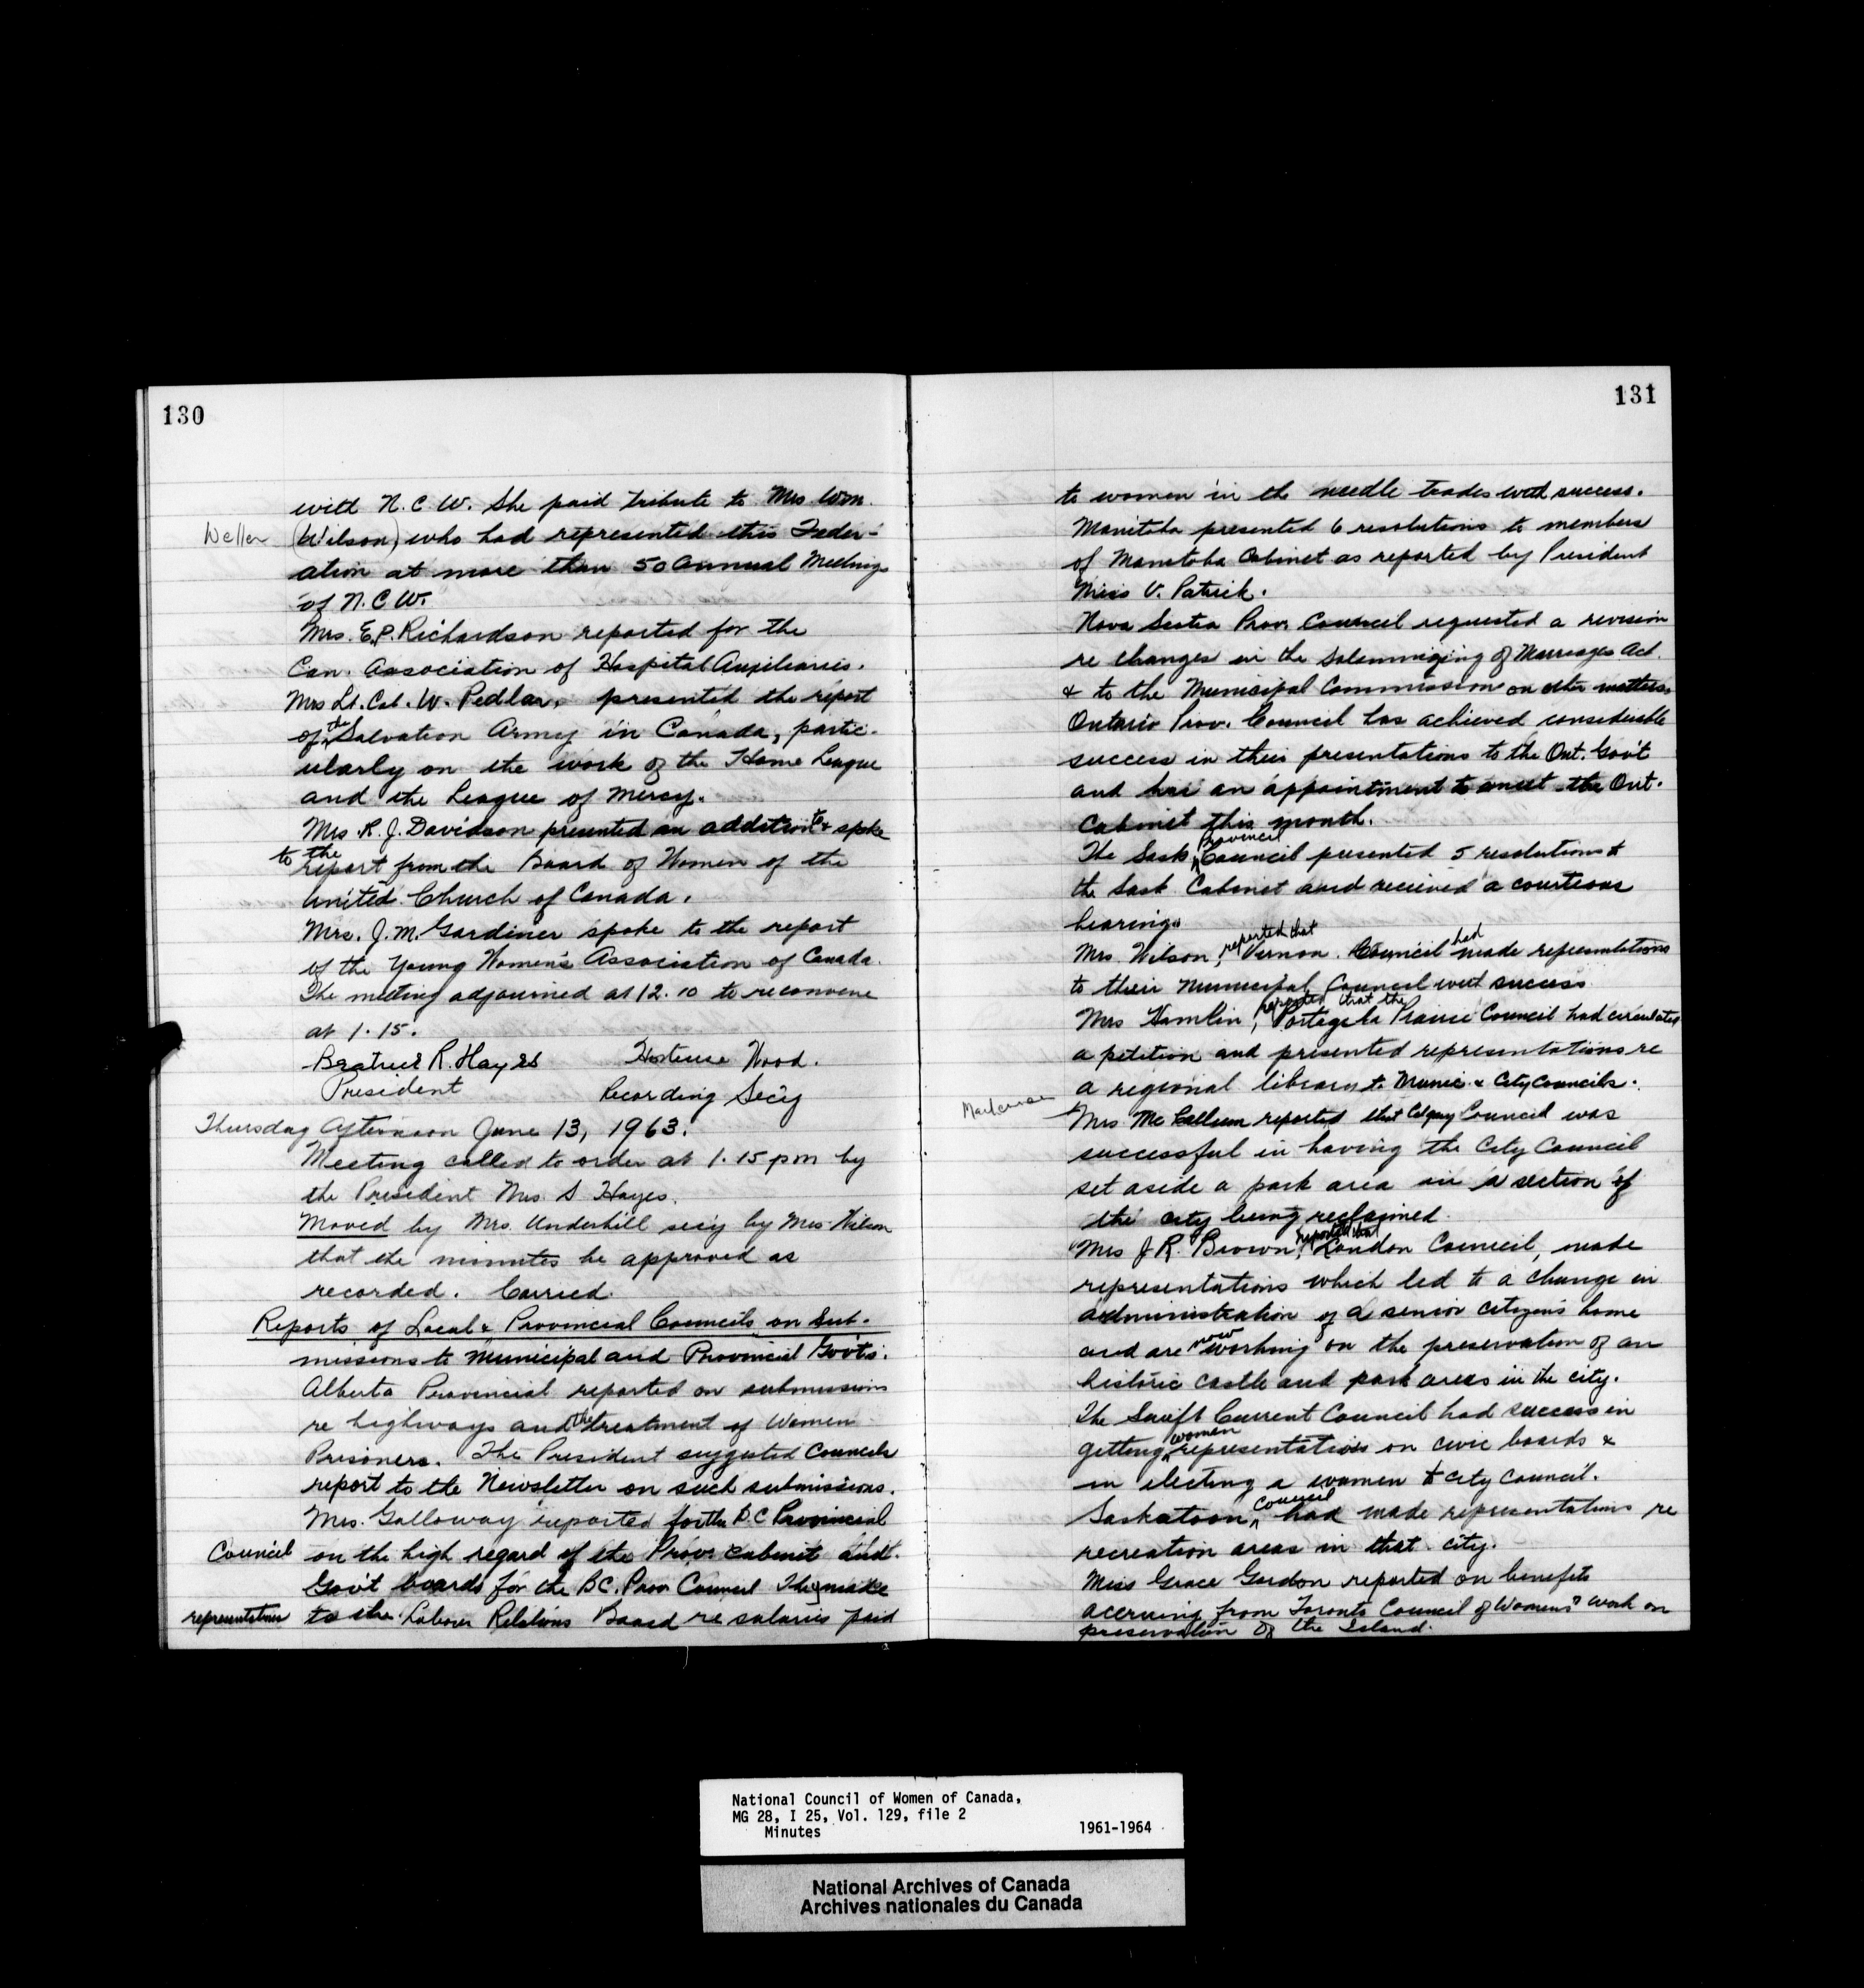 130
with N.C.W. She paid tribute to Mrs. Wm.
Weller (Wilson) who had represented this Feder-
ation at more than 50 Annual Meetings
of N.C.W.
Mrs. E.P. Richardson reported for the
Can. Association of Hospital Auxiliaries.
Mrs Lt. Col. W. Pedlar, presented the report
of the Salvation Army in Canada, partic-
ularly on the work of the Home League
and the League of Mercy.
Mrs. R. J. Davidson presented an addition to & spoke
to the report from the Board of Women of the
United Church of Canada.
Mrs. J. M. Gardiner spoke to the report
of the Young Women's Association of Canada.
The meeting adjourned at 12.10 to reconvene
at 1.15.
Beatrice R. Hayes Hortense Wood.
President Recording Sec'y
Thursday Afternoon June 13, 1963.
Meeting called to order at 1.15 pm by
the President Mrs. S Hayes.
Moved by Mrs. Underhill sec'y by Mrs Wilson
that the minutes be approved as
recorded. Carried.
Reports of Local & Provincial Councils on Sub-
missions to Municipal and Provincial Gov'ts.
Alberta Provincial reported on submissions
re highways and the treatment of Women
Prisoners. The President suggested Councils
report to the Newsletter on such submissions.
Mrs. Galloway reported for the B.C Provincial
Council on the high regard of the Prov. Cabinet and
Gov't boards for the B.C. Prov Council They make
representations to the Labour Relations Board re salaries paid
131
to women in the needle trades with success.
Manitoba presented 6 resolutions to members
of Manitoba Cabinet as reported by President
Miss V. Patrick.
Nova Scotia Prov. Council requested a revision
re changes in the Solemnizing of Marriages Act.
& to the Municipal Commission on other matters
Ontario Prov. Council has achieved considerable
success in their presentations to the Ont. Gov't
and has an appointment to meet the Ont.
Cabinet this month.
The Sask. Provincial Council presented 5 resolutions to
the Sask Cabinet and received a courteous
hearing.
Mrs. Wilson, reported that Vernon. Council had made representations
to their Municipal Council with success
Mrs Hamlin, reported that the Portage la Prairie Council had circulated
a petition and presented representations re
a regional library to Munic. & City Councils.
Mrs Mc Callum reported that Calgary Council was
successful in having the City Council
set aside a park area in a section of
the city being reclaimed.
Mrs J R. Brown, reported that London Council, made
representations which led to a change in
administration of a senior citizens home
and are now working on the preservation of an
historic castle and park areas in the city.
The Swift Current Council had success in
getting women representation on civic boards &
in electing a women to city council.
Saskatoon, Council had made representations re
recreation areas in that city.
Miss Grace Gordon reported on benefits
accruing from Toronto Council of Womens' work on
preservation of the Island.
National Council of Women of Canada,
MG 28, I 25, Vol. 129, file 2
Minutes 1961-1964
National Archives of Canada
Archives nationales du Canada